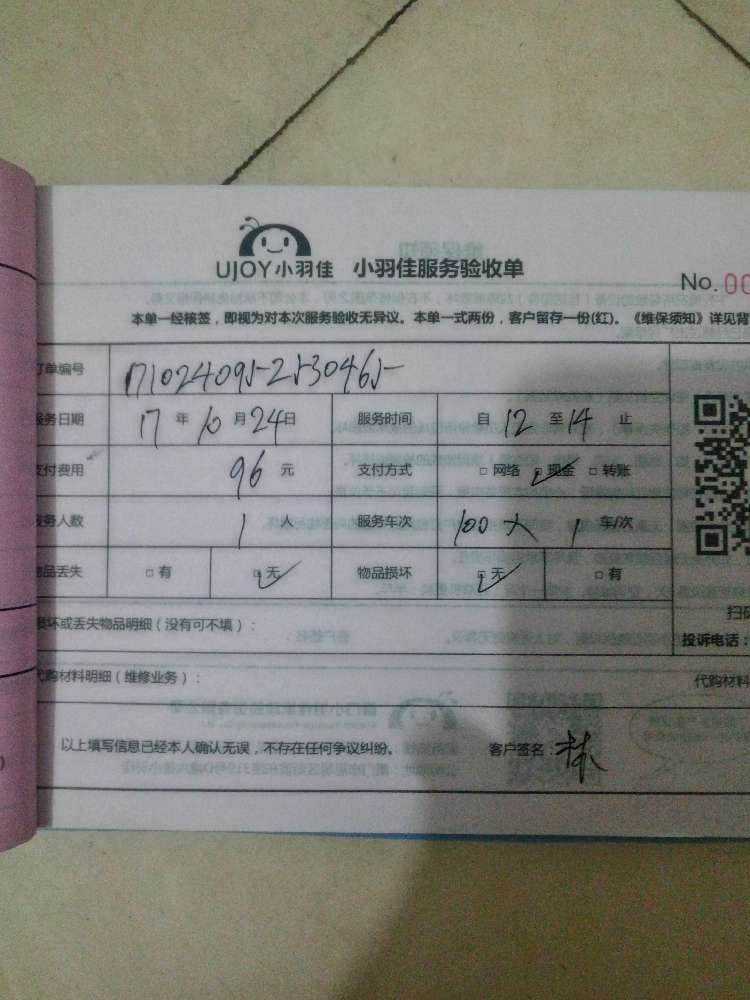 UJOY小羽佳 小羽佳服务验收单
No. 00
本单一经核签，即视为对本次服务验收无异议。本单一式两份，客户留存一份(红)。《维保须知》详见背
订单编号 1710240952530465
服务日期 17 年 10 月 24 日 服务时间 自 12 至 14 止
支付费用 96 元 支付方式 □网络 □现金 □转账
服务人数 1 人 服务车次 1 车/次
物品丢失 □有 □无 物品损坏 □无 □有
损坏或丢失物品明细（没有可不填）：
扫码
投诉电话：
代购材料明细（维修业务）：
代购材料
以上填写信息已经本人确认无误，不存在任何争议纠纷。 客户签名：林